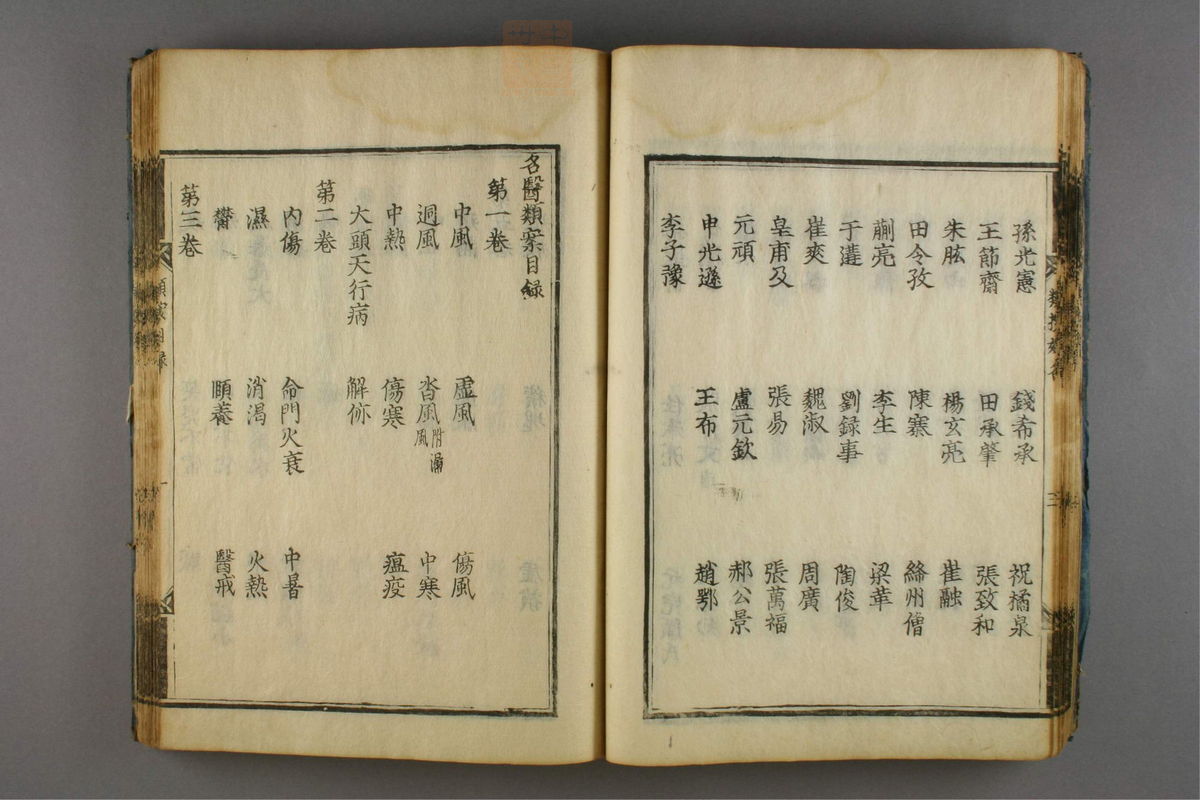 孫光憲 錢希承 祝橘泉
王節齋 田承肇 張致和
朱肱 楊玄亮 崔融
田令孜 陳寨 絳州僧
蒯亮 李生 梁革
于遘 劉録事 陶俊
崔爽 魏淑 周廣
皇甫及 張易 張萬福
元頑 盧元欽 郝公景
申光遜 王布 趙鄂
李子豫
名醫類案目録
第一卷
中風 虛風 傷風
迵風 沓風附漏風 中寒
中熱 傷寒 瘟疫
大頭天行病 解㑊
第二卷
內傷 命門火衰 中暑
濕 消渴 火熱
鬱 頤養 醫戒
第三卷